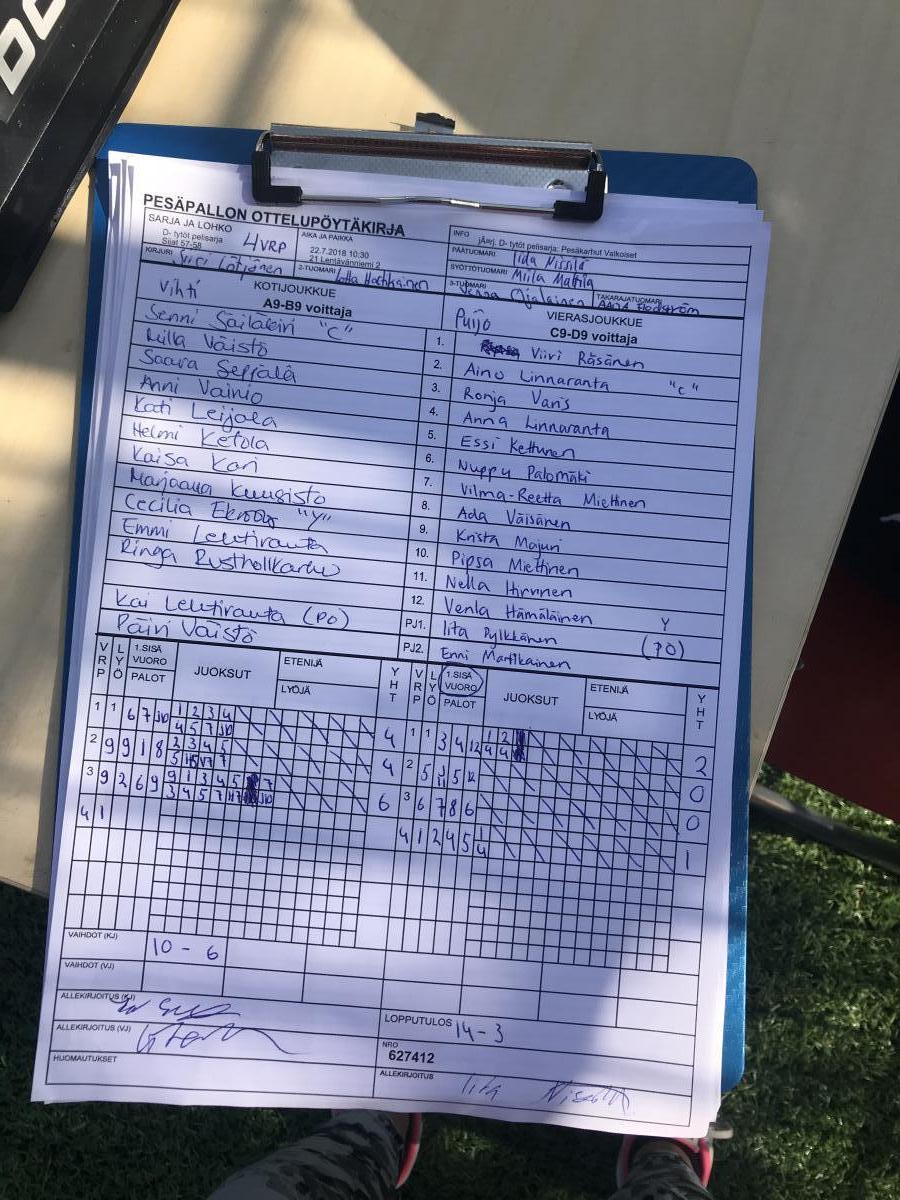 PESÄPALLON OTTELUPÖYTÄKIRJA
SARJA JA LOHKO
D- tytöt pelisarja
Sijat 57-58
4 VRP
AIKA JA PAIKKA
22.7.2018 10:30
21 Lentävänniemi 2
INFO
jÄrj. D- tytöt pelisarja: Pesäkarhut Valkoiset
PÄÄTUOMARI Iida Nissilä
SYÖTTÖTUOMARI Miila Mattila
KIRJURI
2-TUOMARI
3-TUOMARI
TAKARAJATUOMARI
KOTIJOUKKUE
Vihti
A9-B9 voittaja
VIERASJOUKKUE
Puijo
C9-D9 voittaja
Senni "C" 1. Viivi Räsänen
Milla Väistö 2. Aino Linnaranta "C"
Saara Seppälä 3. Ronja Varis
Anni Vainio 4. Anna Linnaranta
Kati Leijala 5. Essi Kettunen
Helmi Ketola 6. Nuppu Palomäki
Kaisa Kari 7. Vilma-Reetta Miettinen
Marjaana Kuugisto 8. Ada Väisänen
Cecilia "Y" 9. Krista Majuri
Emmi Lehtiranta 10. Pipsa Miettinen
11. Nella Hirvinen
12. Venla Hämäläinen Y
Kai Lehtiranta (PO) PJ1. Iita Pylkkänen (PO)
Päivi Väistö PJ2. Enni Martikainen
VRP LYÖ 1.SISÄ VUORO PALOT JUOKSUT ETENIJÄ LYÖJÄ YHT
VRP LYÖ 1.SISÄ VUORO PALOT JUOKSUT ETENIJÄ LYÖJÄ YHT
1 1 6 7 10 1 2 3 4 4
4 5 7 10
1 1 3 4 12 1 2 2
4 4
2 9 9 1 8 2 3 4 5 4
2 5 11 5 12 0
3 9 2 6 9 9 1 3 4 5 7 6
3 6 7 8 6 0
4 1
4 1 2 4 5 1 1
4
VAIHDOT (KJ) 10 - 6
VAIHDOT (VJ)
ALLEKIRJOITUS (KJ)
ALLEKIRJOITUS (VJ)
HUOMAUTUKSET
LOPPUTULOS 14-3
NRO
627412
ALLEKIRJOITUS